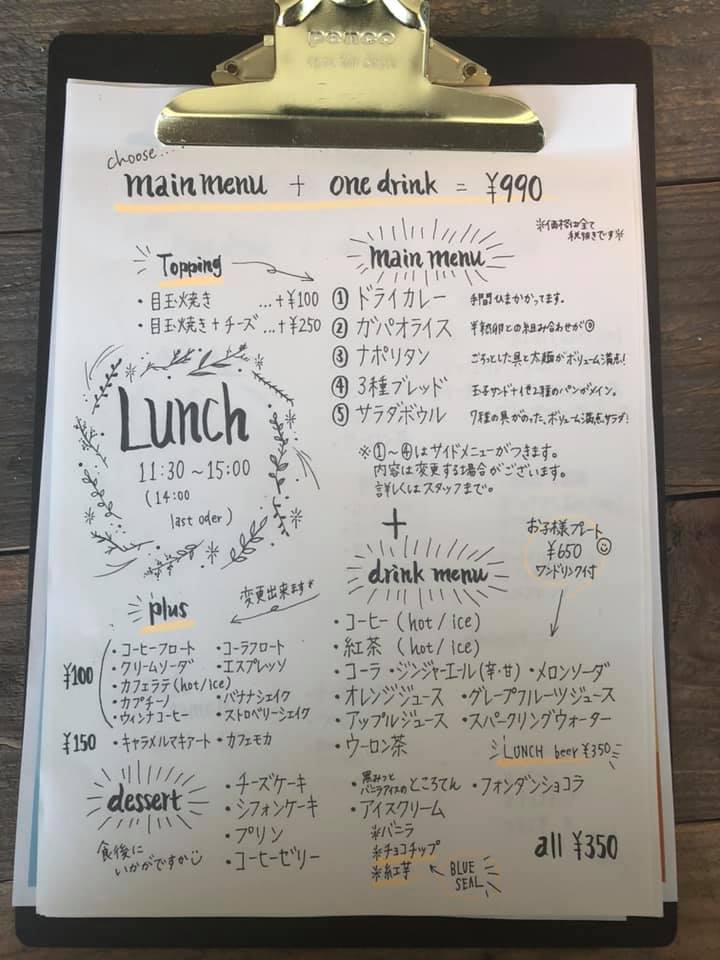 penco
choose....
main menu + one drink = ¥990
※価格は全て
税抜きです※
Topping
・目玉焼き ...+¥100
・目玉焼き+チーズ ...+¥250
main menu
① ドライカレー 手間ひまかかってます。
② ガパオライス 半熟卵との組み合わせが◎
③ ナポリタン ごろっとした具と太麺がボリューム満点!
④ 3種ブレッド 玉子サンド+他2種のパンがメイン。
⑤ サラダボウル 7種の具がのった、ボリューム満点サラダ!
※①~④はサイドメニューがつきます。
内容は変更する場合がございます。
詳しくはスタッフまで。
Lunch
11:30~15:00
(14:00
last oder)
+
お子様プレート
¥650
ワンドリンク付
drink menu
・コーヒー (hot/ice)
・紅茶 (hot/ice)
・コーラ ・ジンジャーエール(辛・甘) ・メロンソーダ
・オレンジジュース ・グレープフルーツジュース
・アップルジュース ・スパークリングウォーター
・ウーロン茶
LUNCH beer ¥350
変更出来ます
plus
¥100
・コーヒーフロート ・コーラフロート
・クリームソーダ ・エスプレッソ
・カフェラテ(hot/ice)
・カプチーノ ・バナナシェイク
・ウィンナコーヒー ・ストロベリーシェイク
¥150 ・キャラメルマキアート ・カフェモカ
dessert
食後に
いかがですか
・チーズケーキ
・シフォンケーキ
・プリン
・コーヒーゼリー
・黒みつと
バニラアイスのところてん ・フォンダンショコラ
・アイスクリーム
※バニラ
※チョコチップ
※紅芋
BLUE
SEAL
all ¥350